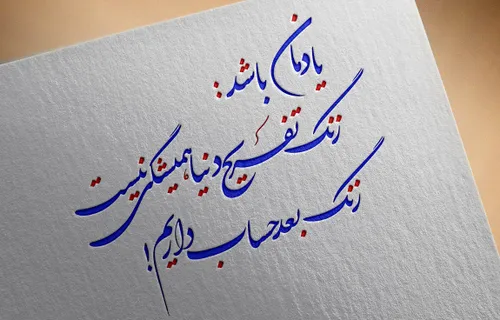 یادمان باشد:
زنگ تفریح دنیا همیشگی نیست
زنگ بعد حساب داریم!